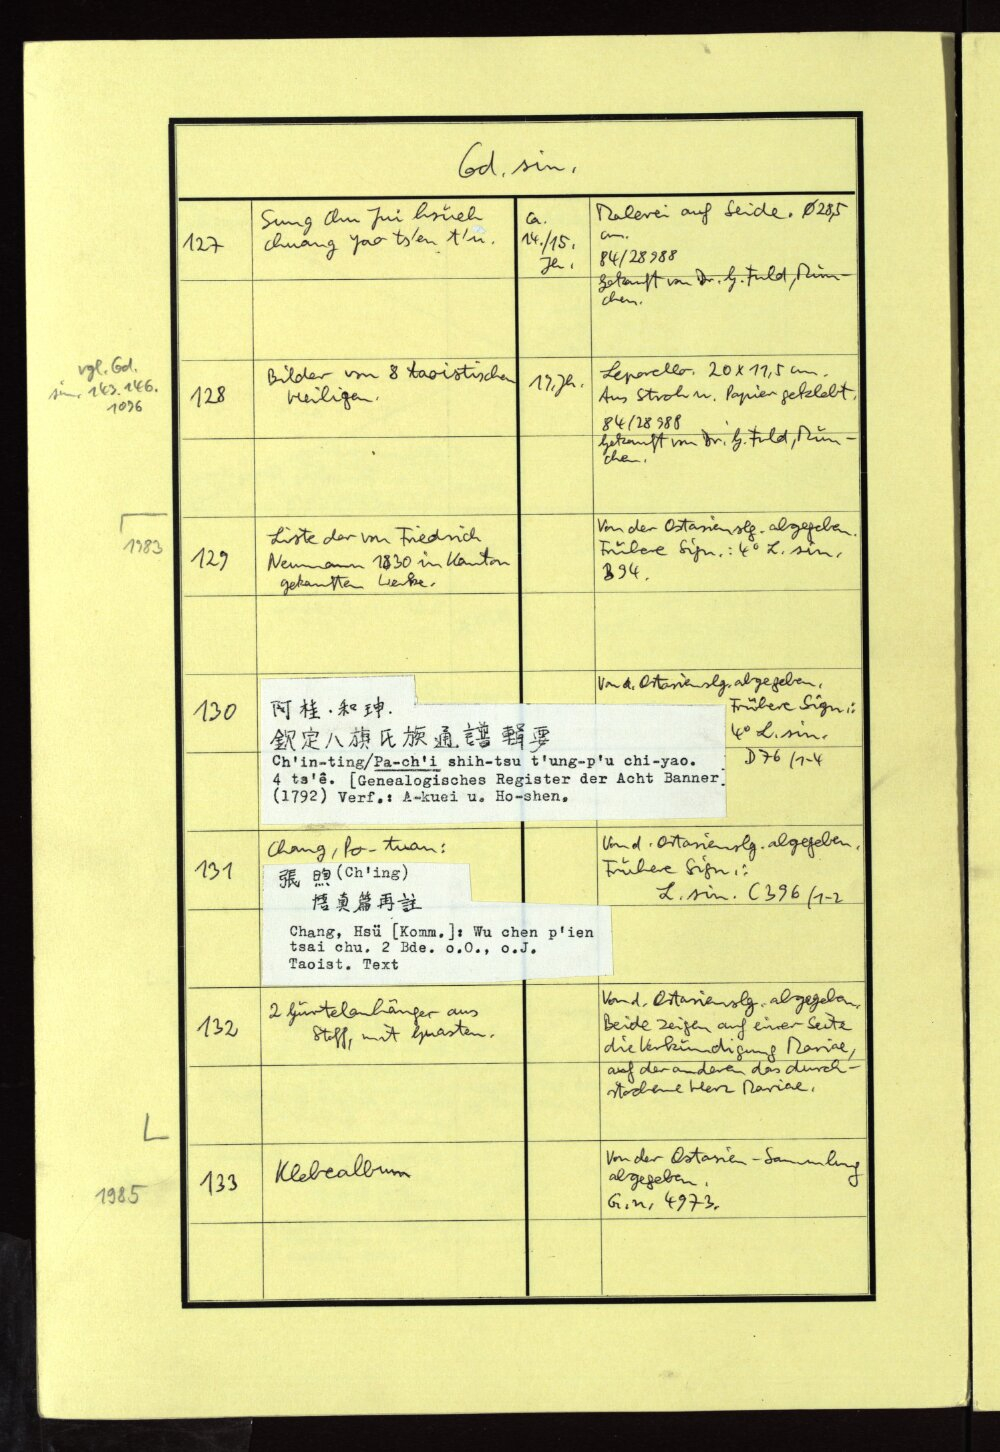 Cod. sin.
127
Sung Chu Jui hsüeh
chuang yao ts'en t'u.
ca.
14./15.
Jh.
Malerei auf Seide. Ø 28,5
cm.
84/28988
Gekauft von Dr. G. Fuld, Mün-
chen.
vgl. Cod.
sin. 143. 146.
1096
128
Bilder von 8 taoistischen
Heiligen.
19. Jh.
Leporello. 20 x 11,5 cm.
Aus Stroh u. Papier geklebt.
84/28988
Gekauft von Dr. G. Fuld, Mün-
chen.
1983
129
Liste der von Friedrich
Neumann 1830 in Kanton
gekauften Werke.
Von der Ostasienslg. abgegeben.
Frühere Sign.: 4° L. sin.
B 94.
130
阿桂.和珅.
欽定八旗氏族通譜輯要
Ch'in-ting/Pa-ch'i shih-tsu t'ung-p'u chi-yao.
4 ts'ê. [Genealogisches Register der Acht Banner]
(1792) Verf.: A-kuei u. Ho-shen.
Von d. Ostasienslg. abgegeben.
Frühere Sign.:
4° L. sin.
D 76 /1-4
131
Chang, Po-tuan:
張 煦 (Ch'ing)
悟真篇再註
Chang, Hsü [Komm.]: Wu chen p'ien
tsai chu. 2 Bde. o.O., o.J.
Taoist. Text
Von d. Ostasienslg. abgegeben.
Frühere Sign.:
L. sin. C 396 /1-2
132
2 Gürtelanhänger aus
Stoff, mit Quasten.
Von d. Ostasienslg. abgegeben.
Beide zeigen auf einer Seite
die Verkündigung Mariae,
auf der anderen das durch-
stochene Herz Mariae.
1985
133
Klebealbum
Von der Ostasien-Sammlung
abgegeben.
G.n. 4973.